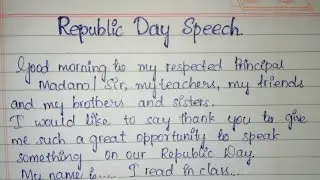 Republic Day Speech
Good morning to my respected Principal
Madam/ Sir, my teachers, my friends
and my brothers and sisters.
I would like to say thank you to give
me such a great opportunity to speak
something on our Republic Day.
My name is..... I read in class....